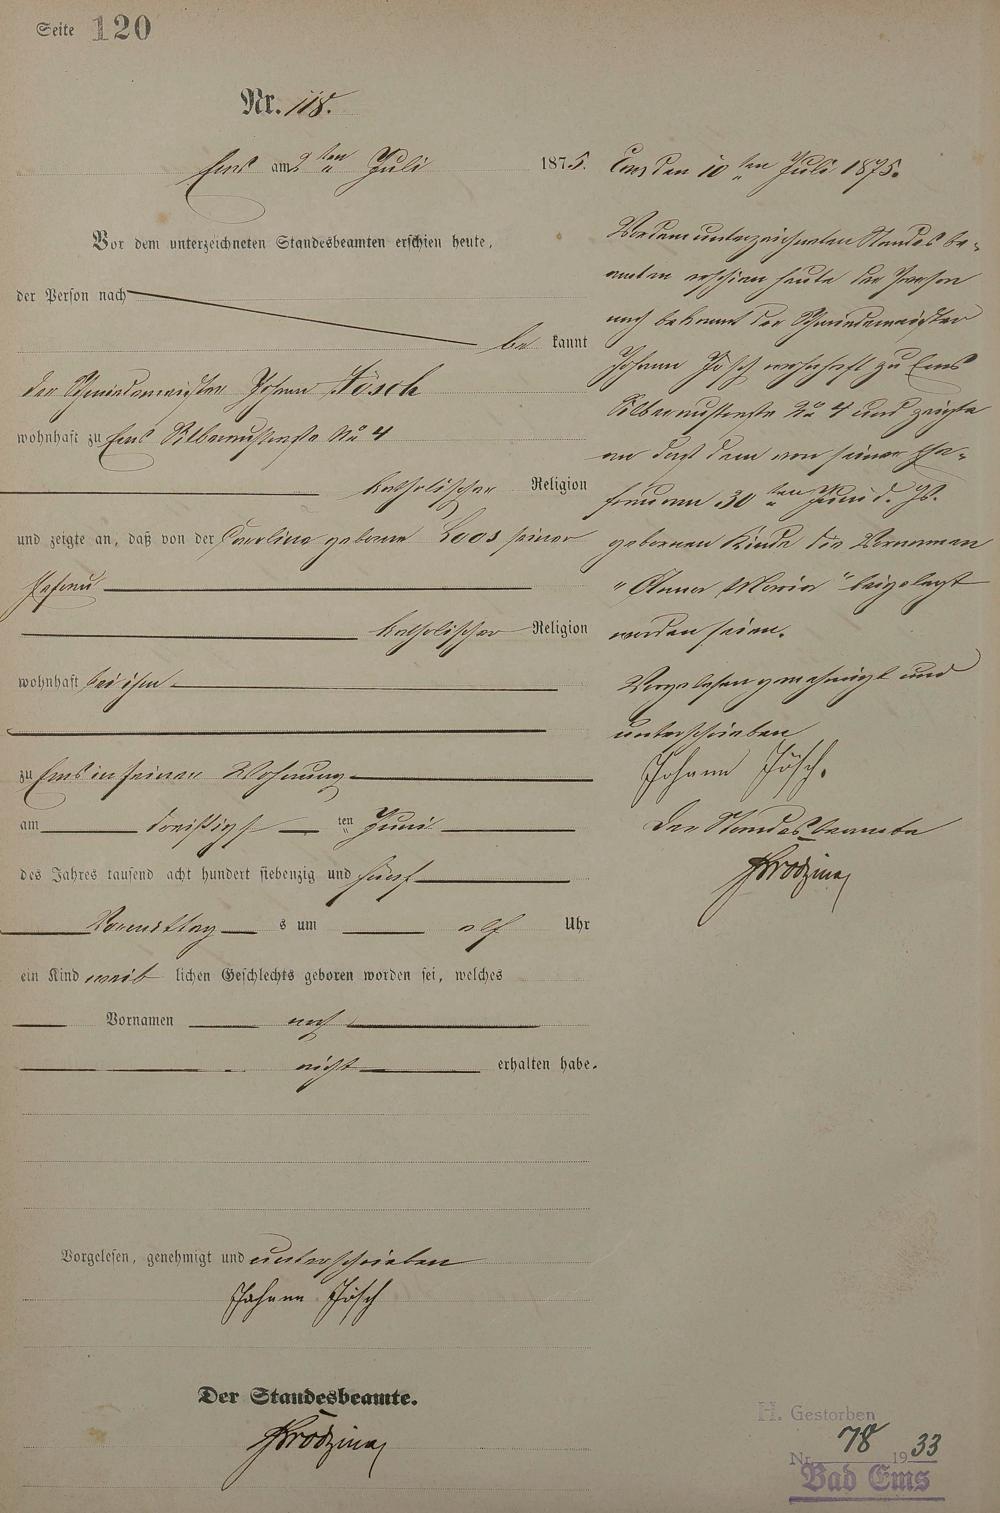 Seite 120
Nr. 118.
Ems am 2ten Juli 1875.
Vor dem unterzeichneten Standesbeamten erschien heute,
der Person nach
bekannt
der Schmiedemeister Johann Jösch
wohnhaft zu Ems Silberaustraße No 4
katholischer Religion
und zeigte an, daß von der Caroline geborene Loos seiner
Ehefrau
katholischer Religion
wohnhaft bei ihm
zu Ems in seiner Wohnung
am dreißigst ten Juni
des Jahres tausend acht hundert siebenzig und fünf
Vormittag s um elf Uhr
ein Kind weib lichen Geschlechts geboren worden sei, welches
Vornamen noch
nicht erhalten habe.
Vorgelesen, genehmigt und unterschrieben
Johann Jösch
Der Standesbeamte.
Ems den 10ten Juli 1875.
Vor dem unterzeichneten Standesbe-
amten erschien heute der Person
nach bekannt der Schmiedemeister
Johann Jösch wohnhaft zu Ems
Silberaustraße No 4 und zeigte
an daß dem von seiner Ehe-
frau am 30ten Juni d. Js.
geborenen Kinde die Vornamen
"Anna Maria" beigelegt
worden seien.
Vorgelesen genehmigt und
unterschrieben
Johann Jösch.
Der Standesbeamte
H. Gestorben
Nr. 78 1933
Bad Ems